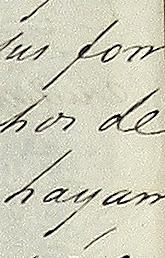 sus fon
hor de
hayam